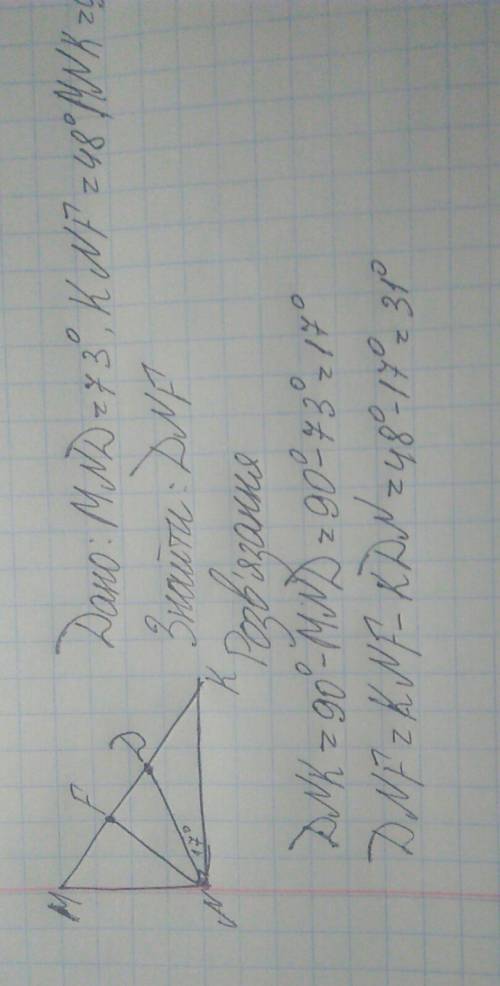 Дано: MND=73°, KNF=48° MNK=9
Знайти: DNF
Розв'язання
DNK=90°-MND=90°-73°=17°
DNF=KNF-KDN=48°-17°=31°
M
F
D
K
N
17°